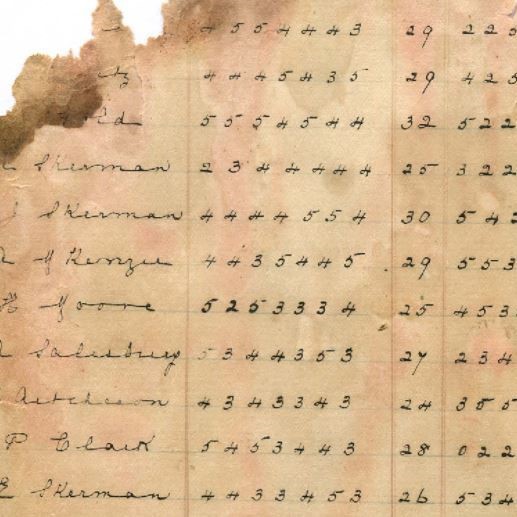 4 5 5 4 4 4 3 29 2 2 5
4 4 4 5 4 3 5 29 4 2 5
ld 5 5 5 4 5 4 4 32 5 2 2
Skerman 2 3 4 4 4 4 4 25 3 2 2
J Skerman 4 4 4 4 5 5 4 30 5 4 2
4 4 3 5 4 4 5 29 5 5 3
H Moore 5 2 5 3 3 3 4 25 4 5 3
Salesbury 5 3 4 4 3 5 3 27 2 3 4
Aitcheson 4 3 4 3 3 4 3 24 3 5 5
P Clark 5 4 5 3 4 4 3 28 0 2 2
E Skerman 4 4 3 3 4 5 3 26 5 3 4